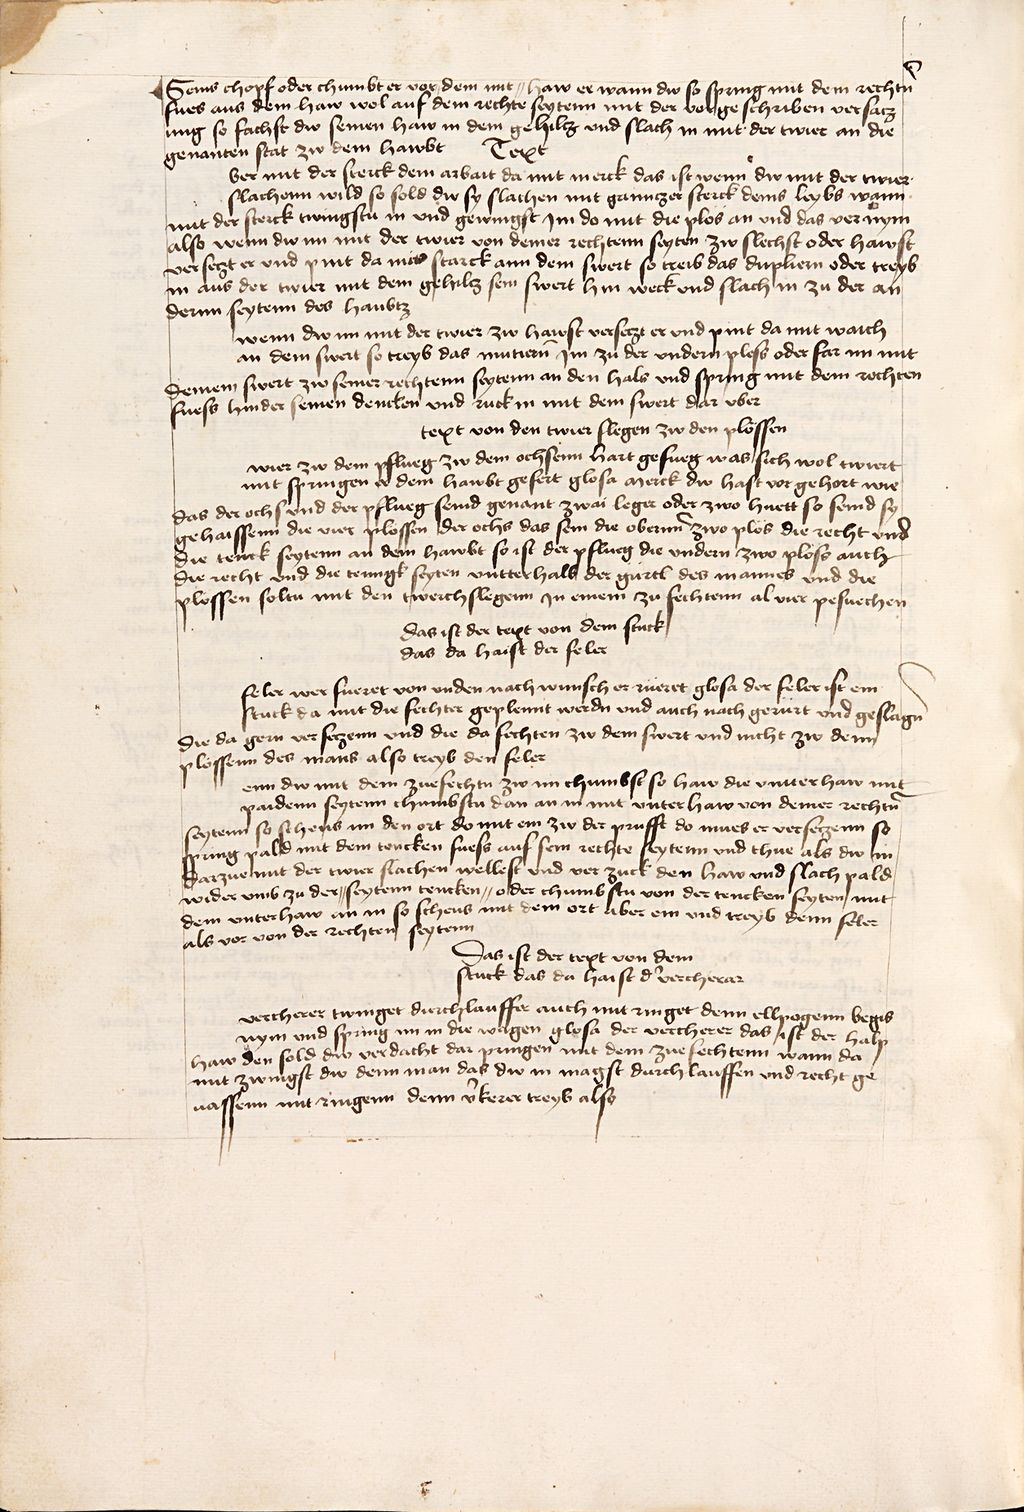 Seins chopf oder chumbt er vor dem mit haw er wann dw so spring mit dem rechtn
fues aus dem haw wol auf dem rechte seytenn mit der vor geschriben versacz
ung so fachst dw seinen haw in dem gehilcz und slach in mit der twier an die
genanten stat zw dem hawbt Text
Ver mit der sterck dein arbait da mit merck das ist wenn dw mit der twier
slachenn wild so sold dw sy slachen mit gannczer sterck deins leybs wann
mit der sterck twingstu in und gewingst im do mit die plös an und das vernym
also wenn dw im mit der twier von deiner rechtenn seyten zw slechst oder hawst
verseczt er und pint da mit starck ann dein swert so treib das dupliern oder treyb
in aus der twier mit dem gehilcz sein swert hin weck und slach in zu der an
dernn seytenn des haubtz
wenn dw im mit der twier zw hawst verseczt er und pint da mit waich
an dein swert so treyb das mutiern im zu der undern plöss oder far im mit
deinem swert zw seiner rechtenn seytenn an den hals und spring mit dem rechten
fuess hinder seinen dencken und ruck in mit dem swert dar vber
text von den twier slegen zw den plössen
wier zw dem pflueg zw dem ochsenn hart gefueg was sich wol twiert
mit springen dem hawbt gefert glosa merck dw hast vor gehort wie
das der ochs und der pflueg seind genant zwai leger oder zwo huett so seind sy
gehaissenn die vier plossen der ochs das sein die obernn zwo plös die recht und
die tenck seytenn an dem hawbt so ist der pflueg die undern zwo plöss auch
die recht und die tenngk seyten untterhalb der gürtl des mannes und die
plossen soltu mit den twerchslegenn in einem zu fechtenn al vier pesuechen
das ist der text von dem stuck
das da haist der feler
feler wer fueret von unden nach wunsch er rüeret glosa der feler ist ein
stuck da mit die fechter geplennt werdn und auch nach gerürt und geslagn
die da gern verseczenn und die da fechten zw dem swert und nicht zw denn
plössenn des mans also treyb den feler
enn dw mit dem zuefechtn zw im chumbst so haw die unnter haw mit
paidenn seytenn chumbstu dan an in mit unterhaw von deiner rechtn
seytenn so scheus im den ort do mit ein zw der prusst do mues er verseczenn so
spring pald mit dem tencken fuess auf sein rechte seytenn und thue als dw in
darzue mit der twier slachen wellest und ver zuck den haw und slach pald
wider umb zu der seytenn tencken oder chumbstu von der tencken seyten mit
dem unterhaw an in so scheus mit dem ort aber ein und treyb denn feler
als vor von der rechten seytenn
Das ist der text von dem
stuck das da haist d' vercherar
vercherer twinget durchlauffer auch mit ringet denn ellpogenn begis
nym und spring im in die wagen glosa der vercherer das ist der halp
haw den sold dw verdacht dar pringen mit dem zuefechtenn wann da
mit zwingst dw denn man das dw in magst durchlauffen und recht ge
uassenn mit ringenn denn v'kerer treyb also